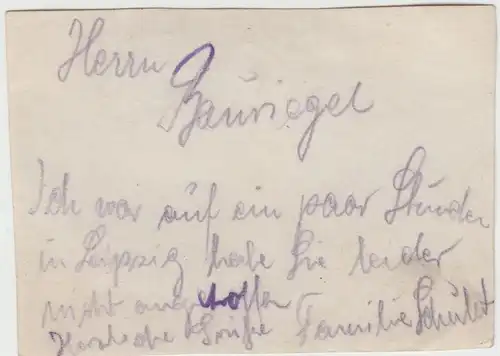 Herrn
Bauriegel
Ich war auf ein paar Stunden
in Leipzig habe Sie leider
nicht angetroffen
Herzliche Grüße Familie Schulet